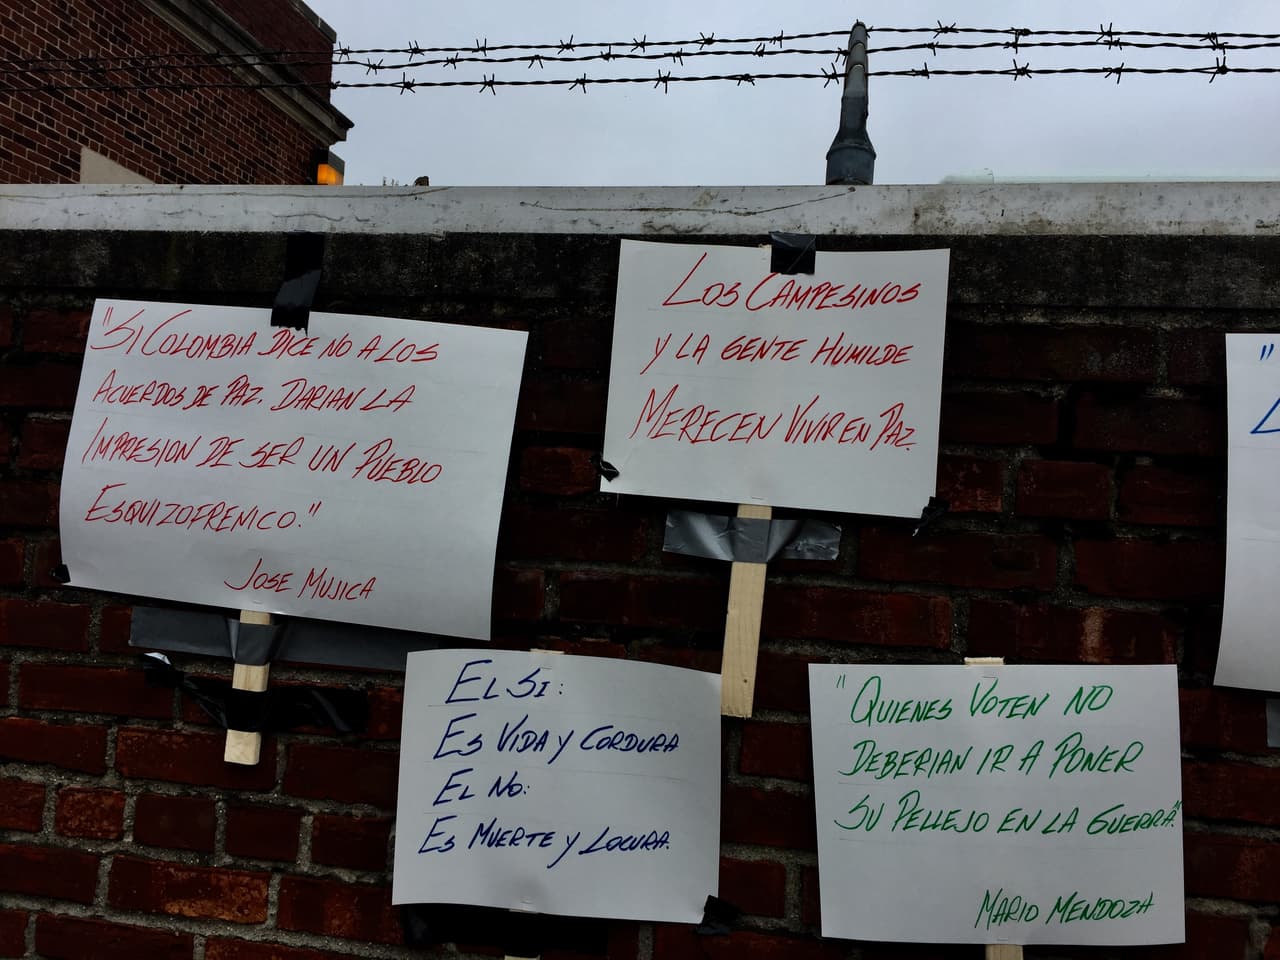 "SI COLOMBIA DICE NO A LOS
ACUERDOS DE PAZ. DARIAN LA
IMPRESION DE SER UN PUEBLO
ESQUIZOFRENICO."
JOSE MUJICA
LOS CAMPESINOS
Y LA GENTE HUMILDE
MERECEN VIVIR EN PAZ.
EL SI:
ES VIDA Y CORDURA
EL NO:
ES MUERTE Y LOCURA.
"QUIENES VOTEN NO
DEBERIAN IR A PONER
SU PELLEJO EN LA GUERRA."
MARIO MENDOZA